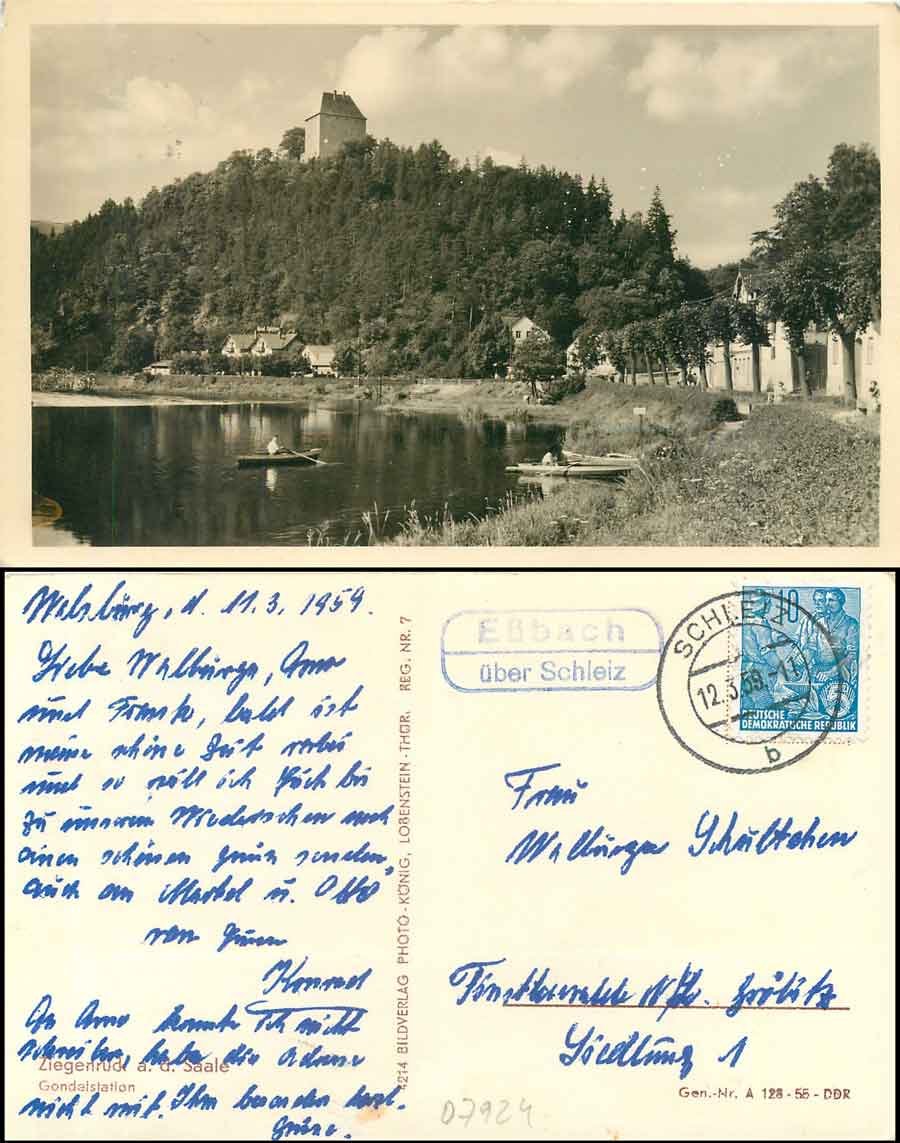 Walsburg, d. 11.3.1959.
Liebe Walburga, Arno
und Frank, bald ist
meine schöne Zeit vorbei
und so will ich Euch bis
zu unserem Wiedersehen noch
einen schönen Gruß senden,
auch an u. Otto
von Eurem
Konrad
An Arno konnte ich nicht
schreiben, habe die Adresse
nicht mit. Ihm besonders herzl.
Grüße.
Ziegenrück a. d. Saale
Gondelstation
4214 BILDVERLAG PHOTO-KÖNIG, LOBENSTEIN-THÜR. REG. NR. 7
Eßbach
über Schleiz
SCHLEIZ
12.3.59.-11
b
10
DEUTSCHE
DEMOKRATISCHE REPUBLIK
Frau
Walburga
Finsterwalde N/L.
Siedlung 1
Gen.-Nr. A 128-55-DDR
07924